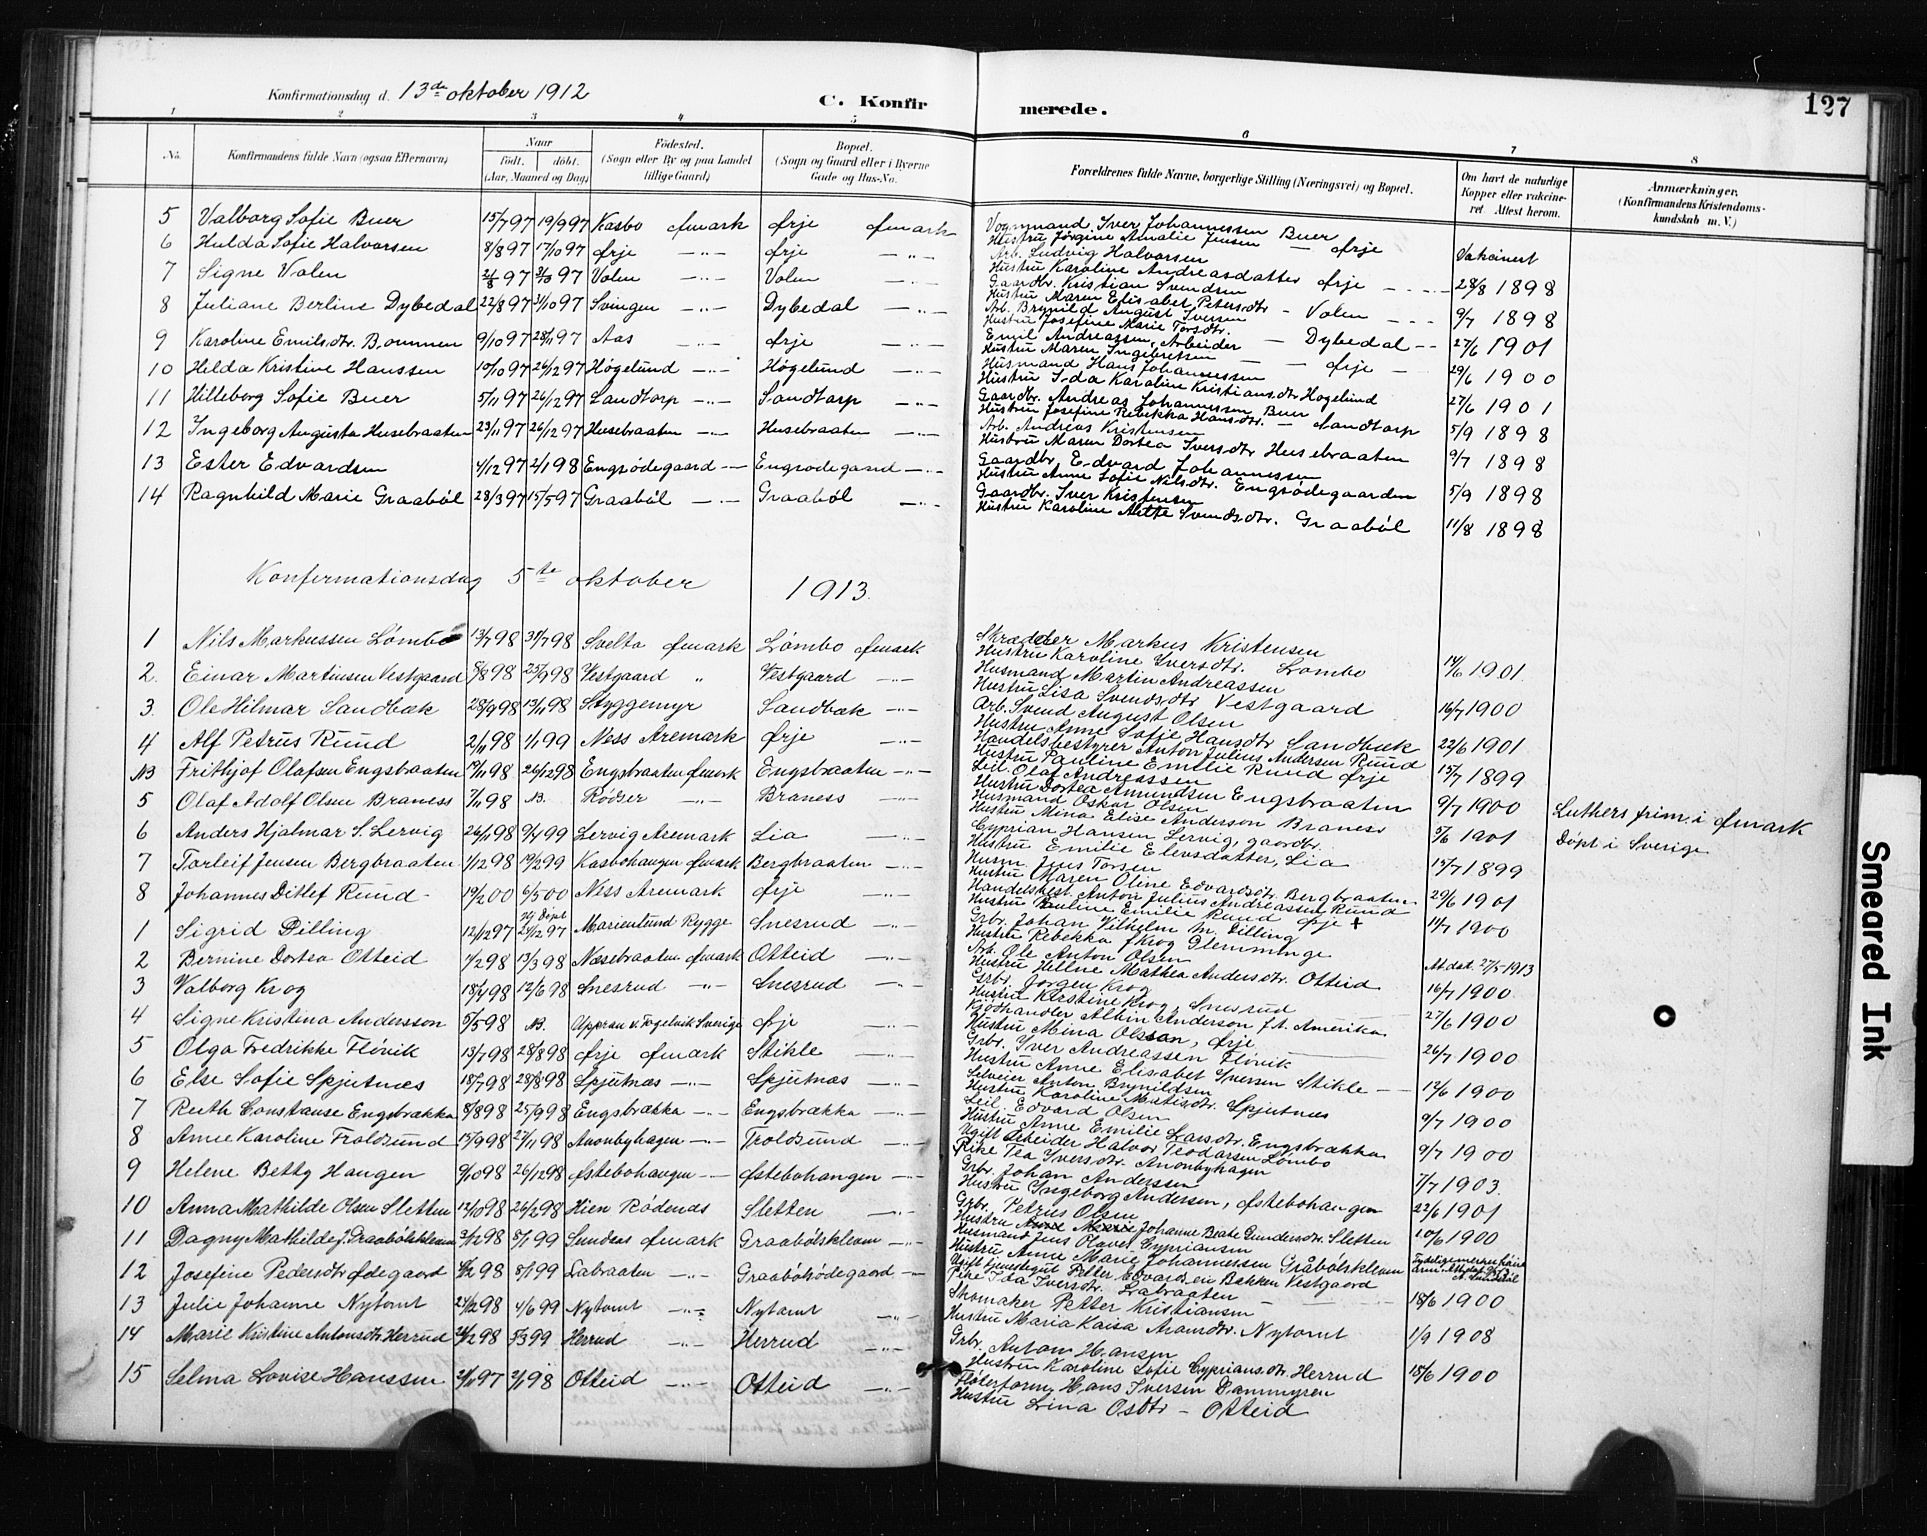 127
Konfirmationsdag d. 13de oktober 1912
C. Konfirmerede.
1 2 3 4 5 6 7 8
No. Konfirmandens fulde Navn (ogsaa Efternavn) Naar født. døbt. (Aar, Maaned og Dag) Fødested. (Sogn eller By og paa Landet tillige Gaard) Bopæl. (Sogn og Gaard eller i Byerne Gade og Hus-No. Forældrenes fulde Navne, borgerlige Stilling (Næringsvei) og Bopæl. Om havt de naturlige Kopper eller vakcineret. Attest herom. Anmærkninger. (Konfirmandens Kristendomskundskab m. V.)
5 Valborg Sofie Buer 15/7 97 19/9 97 Kasbo Ømark Ørje Ømark Vognmand Iver Johannessen Buer
Hustru Jørgine Amalie Jensen — Ørje Vakcinert
6 Hulda Sofie Halvorsen 8/8 97 17/10 97 Ørje —"— Ørje —"— Arb. Ludvig Halvorsen
Hustru Karoline Andreasdatter Ørje — 28/8 1898
7 Signe Volen 97 97 Volen —"— Volen —"— Gaardbr. Kristian Svendsen
Hustru Maren Elisabet Petersdtr — Volen — 9/7 1898
8 Juliane Berline Dybedal 22/8 97 31/10 97 Svingen —"— Dybedal —"— Arb. Brynild August Iversen
Hustru Josefine Marie Torsdtr. — Dybedal — 27/6 1901
9 Karoline Emilsdtr. Bommen 9/10 97 28/11 97 Aas —"— Ørje —"— Emil Andreassen, Arbeider
Hustru Maren Ingebretsen — Ørje — 29/6 1900
10 Helda Kristine Hanssen 10/10 97 26/12 97 Høgelund —"— Høgelund —"— Husmand Hans Johannessen
Hustru Ida Karoline Kristiansdtr Høgelund 27/6 1901
11 Hilleborg Sofie Buer 5/11 97 26/12 97 Sandtorp —"— Sandtorp —"— Gaardbr. Andreas Johannessen Buer
Hustru Josefine Rebekka Hansdtr. — Sandtorp 5/9 1898
12 Ingeborg Augusta Husebraaten 23/11 97 26/12 97 Husebraaten —"— Husebraaten —"— Arb. Andreas Kristensen
Hustru Maren Dortea Iversdtr Husebraaten 9/7 1898
13 Ester Edvardsen 4/12 97 2/1 98 Engrødegaard —"— Engrødegaard —"— Gaardbr. Edvard Johannessen
Hustru Anne Sofie Nilsdtr. Engrødegaarden 5/9 1898
14 Ragnhild Marie Graabøl 28/3 97 15/5 97 Graabøl —"— Graabøl —"— Gaardbr. Iver Kristensen
Hustru Karoline Anette Svendsdtr. Graabøl 11/8 1898
Konfirmationsdag 5te oktober 1913.
1 Nils Markussen Lømbo 13/7 98 31/7 98 Svelta Ømark Lømbo Ømark Skrædder Markus Kristensen
Hustru Karoline Iversdtr. Lømbo 14/6 1901.
2. Einar Martinsen Vestgaard 8/8 98 25/9 98 Vestgaard " Vestgaard —"— Husmand Martin Andreassen
Hustru Lisa Svendsdtr Vestgaard 16/7 1900
3. Ole Hilmar Sandbæk 28/9 98 13/11 98 Styggemyr Sandbæk —"— Arb. Svend August Olsen
Hustru Anne Sofie Hansdtr Sandbæk 22/6 1901
4 Alf Petrus Ruud 2/11 98 1/1 99 Ness Aremark Ørje —"— Handelsbestyrer Anton Julius Andersen Ruud
Hustru Pauline Emilie Ruud Ørje 15/7 1899
NB Frithjof Olafsen Engsbraaten 98 26/12 98 Engsbraaten Ømark Engsbraaten —"— Leil. Olaf Andreassen
Hustru Dortea Amundsen Engsbraaten 9/7 1900 Luthers frim. i Ømark
5 Olaf Adolf Olsen Braness 7/11 98 NB. Rødser —"— Braness —"— Husmand Oskar Olsen
Hustru Mina Elise Anderson Braness 5/6 1901 Døpt i Sverige
6 Anders Hjalmar S. Lervig 26/11 98 9/4 99 Lervig Aremark Lia —"— Cyprian Hansen Lervig, gaardbr.
Hustru Emilie Elensdatter, Lia 15/7 1899
7 Torleif Jensen Bergbraaten 1/12 98 19/2 99 Kasbohaugen Ømark Bergbraaten —"— Husm. Jens Torsen
Hustru Maren Oline Edvardsdtr Bergbraaten 29/6 1901
8 Johannes Ditlef Ruud 19/2 00 6/5 00 Ness Aremark Ørje —"— Handelsbest. Anton Julius Andreassen Ruud
Hustru Pauline Emilie Ruud Ørje + 14/7 1900
1 Sigrid Dilling 12/12 97 Hj. døpt 24/12 97 Marienlund Rygge Snesrud —"— Grbr. Johan Vilhelm M. Dilling
Hustru Rebekka f Krog Glemminge At. dat. 27/5-1913
2 Bernine Dortea Otteid 1/2 98 13/3 98 Næsebraaten Ømark Otteid —"— Arb. Ole Anton Olsen
Hustru Hellne Mathea Andersdtr. Otteid 16/7 1900
3 Valborg Krog 18/4 98 12/6 98 Snesrud —"— Snesrud —"— Grbr. Jørgen Krog
Hustru Kirstine Krog, Snesrud 27/6 1900
4 Signe Kristina Andersson 5/5 98 NB. Sverige Ørje —"— Kjødhandler Albin Anderson f.t. Amerika
Hustru Mina Olsson, Ørje 26/7 1900
5 Olga Fredrikke Fløvik 13/7 98 28/8 98 Ørje Ømark Stikle —"— Grbr. Iver Andreassen Fløvik
Hustru Anne Elisabet Iversen Stikle — 12/6 1900
6 Else Sofie Spjutnæs 18/7 98 28/8 98 Spjutnæs —"— Spjutnæs —"— Selveier Anton Brynildsen
Hustru Karoline Matisdtr. Spjutnæs 9/7 1900
7 Ruth Constanse Engsbrækka 8/8 98 25/9 98 Engsbrækka —"— Engsbrækka —"— Leil. Edvard Olsen
Hustru Anne Emilie Larsdtr. Engsbrækka 9/7 1900
8 Anne Karoline Troldsund 15/9 98 27/11 98 Anonbyhagen —"— Troldsund —"— Ugift Arbeider Halvor Teodorsen Lømbo
Pike Tea Iversdtr. Anonbyhagen 7/7 1903.
9 Helene Betty Haugen 9/10 98 26/12 98 Østebohaugen —"— Østebohaugen —"— Grbr. Johan Anderssen
Hustru Ingeborg Andersen, Østebohaugen 22/6 1901
10 Anna Mathilde Olsen Sletten 12/10 98 26/12 98 Hien Rødenes Sletten —"— Grbr. Petrus Olsen
Hustru Johanne Beate Gundersdtr. Sletten 10/6 1900
11 Dagny Mathilde J. Graabølskleven 3/12 98 8/1 99 Sundsas Ømark Graabølskleven —"— Husmand Jens Olaves Cypriansen
Hustru Anne Marie Johannessen Gråbølskleven
12 Josefine Pedersdtr Ødegaard 98 8/1 99 Labraaten —"— Graabølsødegaard —"— Ugift tjenestegut Petter Edvardsen Bakken Vestgaard
Pike Ida Iversdtr. Labraaten — 18/6 1900
13 Julie Johanne Nytomt 24/12 98 4/6 99 Nytomt —"— Nytomt —"— Skomaker Petter Kristiansen
Hustru Maria Kaisa Aronsdtr. Nytomt 1/9 1908
14 Marie Kristine Antonsdtr. Herrud 98 5/3 99 Herrud —"— Herrud —"— Grbr. Anton Hansen
Hustru Karoline Sofie Cypriansdtr. Herrud 18/6 1900
15 Selma Lovise Hanssen 97 2/1 98 Otteid —"— Otteid —"— Fløterform. Hans Iversen Dammyren
Hustru Lina Osdtr — Otteid
Smeared Ink